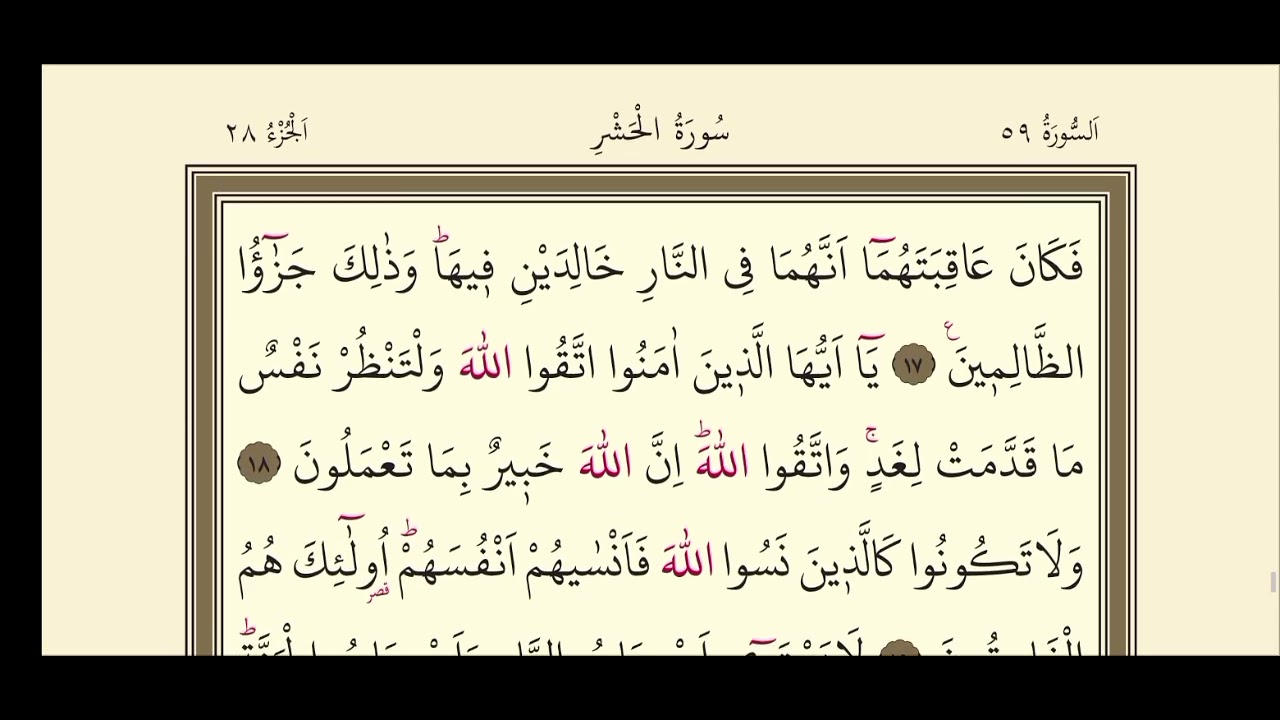 اَلسُّورَةُ ٥٩ سُورَةُ الْحَشْرِ اَلْجُزْءُ ٢٨
فَكَانَ عَاقِبَتَهُمَٓا اَنَّهُمَا فِى النَّارِ خَالِدَيْنِ ف۪يهَاۜ وَذٰلِكَ جَزٰٓؤُا
الظَّالِم۪ينَ ع ١٧ يَٓا اَيُّهَا الَّذ۪ينَ اٰمَنُوا اتَّقُوا اللّٰهَ وَلْتَنْظُرْ نَفْسٌ
مَا قَدَّمَتْ لِغَدٍۚ وَاتَّقُوا اللّٰهَؕ اِنَّ اللّٰهَ خَب۪يرٌ بِمَا تَعْمَلُونَ ١٨
وَلَا تَكُونُوا كَالَّذ۪ينَ نَسُوا اللّٰهَ فَاَنْسٰيهُمْ اَنْفُسَهُمْؕ اُولٰٓئِكَ قصر هُمُ